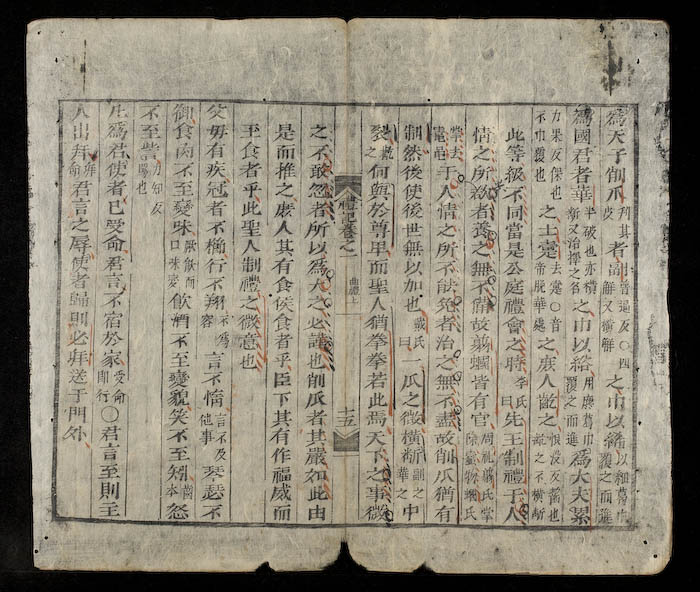 爲天子削瓜刋其皮者副普逼反○四解又橫解之巾以絺以細葛巾覆之而進
爲國君者華半破也亦橫斷又治擇之名之巾以綌用麤葛巾覆之而進爲大夫累
力果反倮也不巾覆也之士疐去疐○音帝脱華處之庶人齕之恨没反齧也齕之不橫斷
此等級不同當是公庭禮會之時李氏曰先王制禮于人
情之所欲者養之無不備故剪蟈皆有官周禮翦氏掌除蠹物蟈氏
掌去䵷黽于人情之所不能免者治之無不盡故削瓜猶有
制然後使後世無以加也戴氏曰一瓜之微橫斷副之華之中
裂何與於尊卑而聖人猶拳拳若此爲天下之事微
禮記卷之一 曲禮上 十五
之不敢忽者所以爲大之必謹也削瓜者其嚴如此由
是而推之庶人其有食侯食者乎臣下其有作福威而
玉食者乎此聖人制禮之微意也
父毋有疾冠者不櫛行不翔不爲容言不惰言不及他事琴瑟不
御食肉不至變味厭飫而口味變飲酒不至變貌笑不至矧齒本怒
不至詈力知反罵也
凡爲君使者已受命君言不宿於家受命即行○君言至則主
人出拜拜命君言之辱使者歸則必拜送于門外